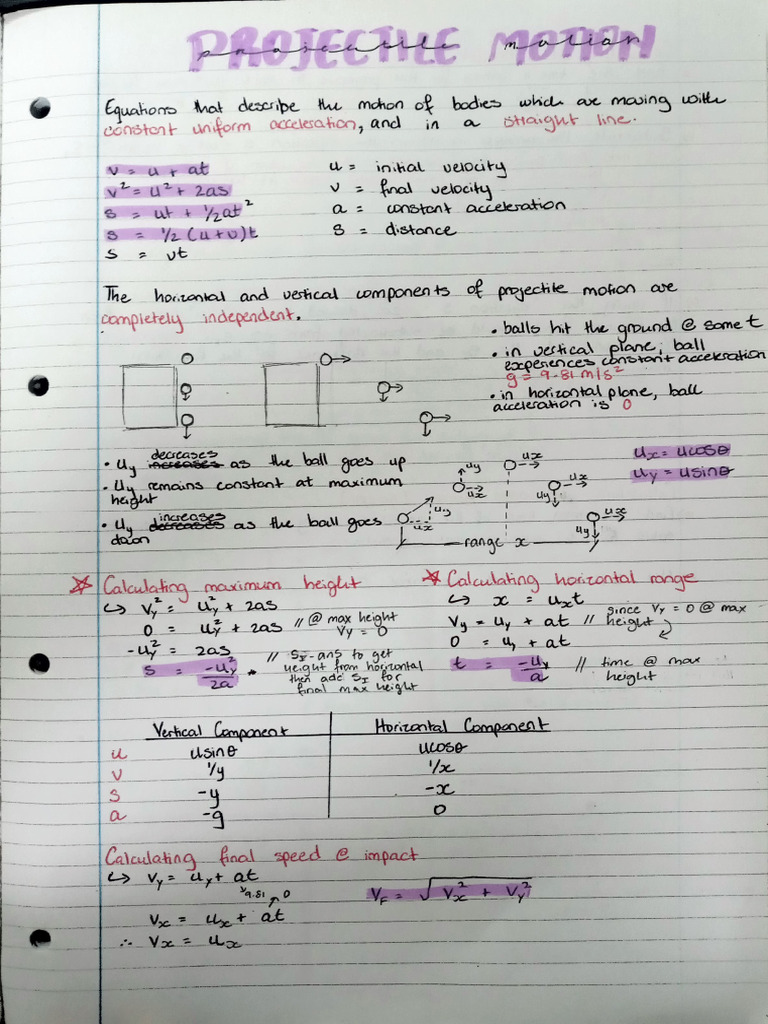 PROJECTILE MOTION
projectile motion
Equations that describe the motion of bodies which are moving with
constant uniform acceleration, and in a straight line.
v = u + at
v² = u² + 2as
s = ut + ½at²
s = ½ (u+v)t
s = vt
u = initial velocity
v = final velocity
a = constant acceleration
s = distance
The horizontal and vertical components of projectile motion are
completely independent.
• balls hit the ground @ same t
• in vertical plane, ball
experiences constant acceleration
g = 9.81 m/s²
• in horizontal plane, ball
acceleration is 0
• uy decreases increases as the ball goes up
• uy remains constant at maximum
height
• uy increases decreases as the ball goes
down
uy
ux
uy
ux
ux
ux
uy
ux
uy
range x
ux = ucosθ
uy = usinθ
☆ Calculating maximum height
↳ vy² = uy² + 2as
0 = uy² + 2as // @ max height
vy = 0
-uy² = 2as
s = -uy²/2a * // SII - ans to get
height from horizontal
then add SI for
final max height
* Calculating horizontal range
↳ x = uxt
vy = uy + at // since vy = 0 @ max
height
0 = uy + at
t = -uy/a // time @ max
height
Vertical Component Horizontal Component
u usinθ ucosθ
v 1/y 1/x
s -y -x
a -g 0
Calculating final speed @ impact
↳ vy = uy + at
9.81 0
vx = ux + at
∴ vx = ux
vF = √vx² + vy²